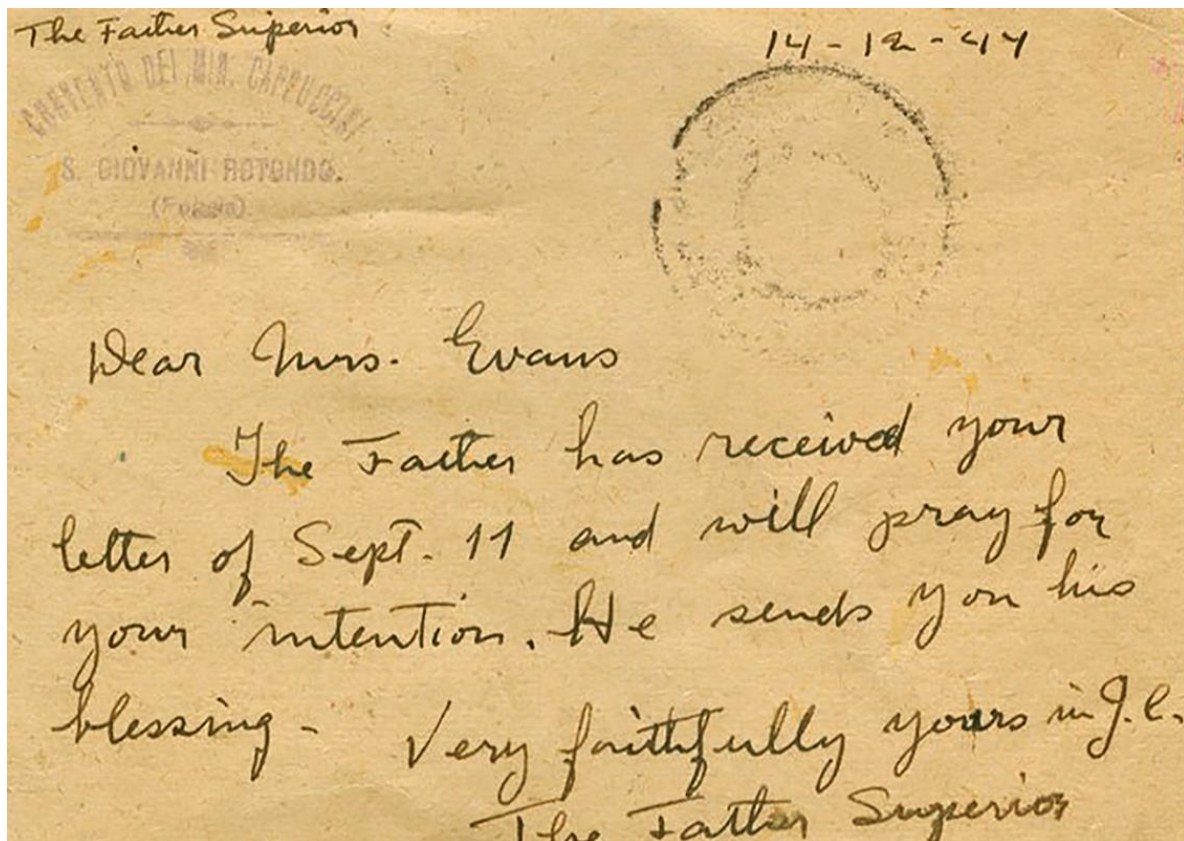 The Father Superior
14-12-47
CONVENTO DEI MIN. CAPPUCCINI
S. GIOVANNI ROTONDO.
(Foggia)
Dear Mrs. Evans
The Father has received your
letter of Sept. 11 and will pray for
your intention. He sends you his
blessing - Very faithfully yours in J.C.
The Father Superior